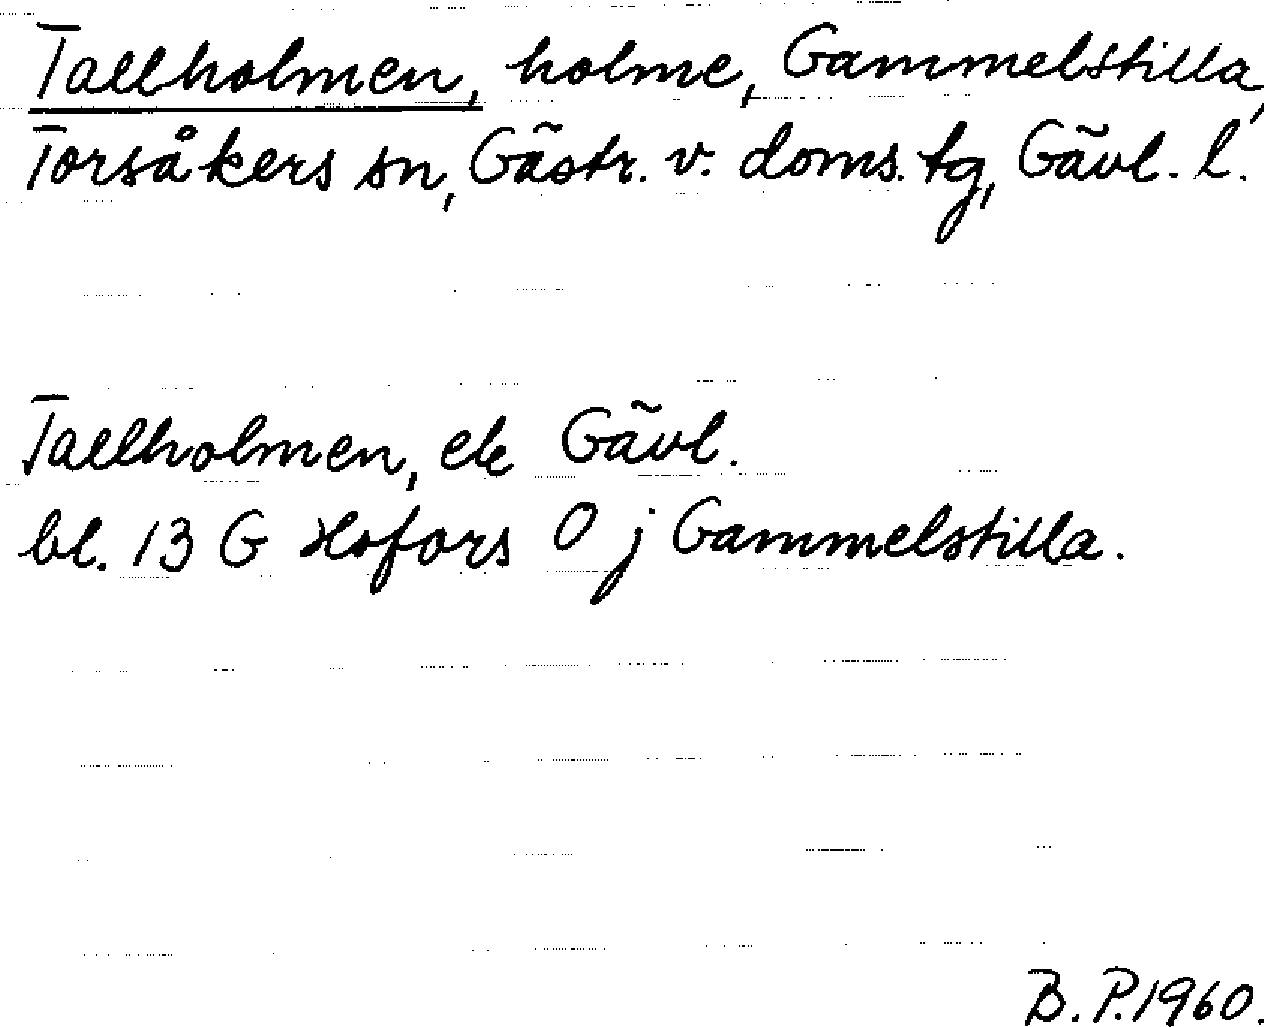 Tallholmen, holme, Gammelstilla,
Torsåkers sn, Gästr. v. doms. tg, Gävl. l.
Tallholmen, ek Gävl.
bl. 13 G Hofors O j Gammelstilla.
B. P. 1960.